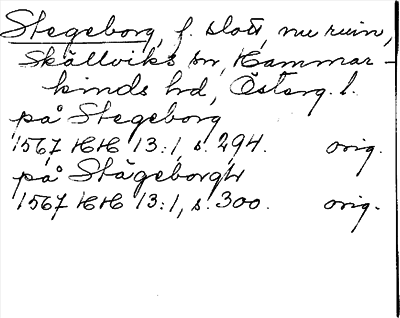 Stegeborg, f. slott, nu ruin,
Skällviks sn, Hammar-
kinds hd, Österg. l.
på Stegeborg
1567 HH 13:1, s. 294. orig.
på Stägeborgh
1567 HH 13:1, s. 300. orig.